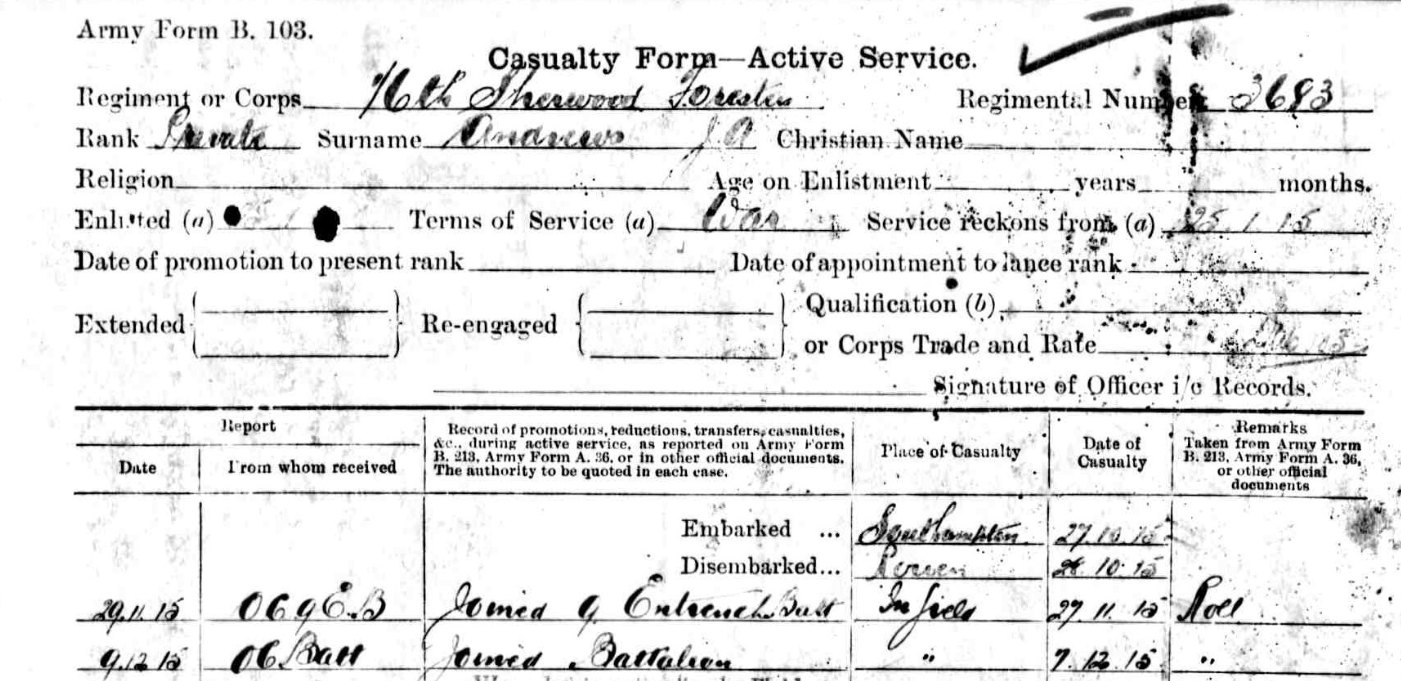 Army Form B. 103.
Casualty Form—Active Service.
Regiment or Corps 1/6th Sherwood Foresters Regimental Number 3683
Rank Private Surname Andrews J A Christian Name
Religion Age on Enlistment years months.
Enlisted (a) Terms of Service (a) War Service reckons from (a) 25.1.15
Date of promotion to present rank Date of appointment to lance rank
Extended Re-engaged Qualification (b)
or Corps Trade and Rate
Signature of Officer i/c Records.
Report
Date From whom received
Record of promotions, reductions, transfers, casualties, &c., during active service, as reported on Army Form B. 213, Army Form A. 36, or in other official documents. The authority to be quoted in each case.
Place of Casualty
Date of Casualty
Remarks
Taken from Army Form B. 213, Army Form A. 36, or other official documents
Embarked ... Southampton 27.10.15
Disembarked... Rouen 28.10.15
29.11.15 OC 9 E.B Joined 9 Entrench. Batt In field 27 11 15 Roll
9.12 15 OC Batt Joined Battalion " 7.12.15 "